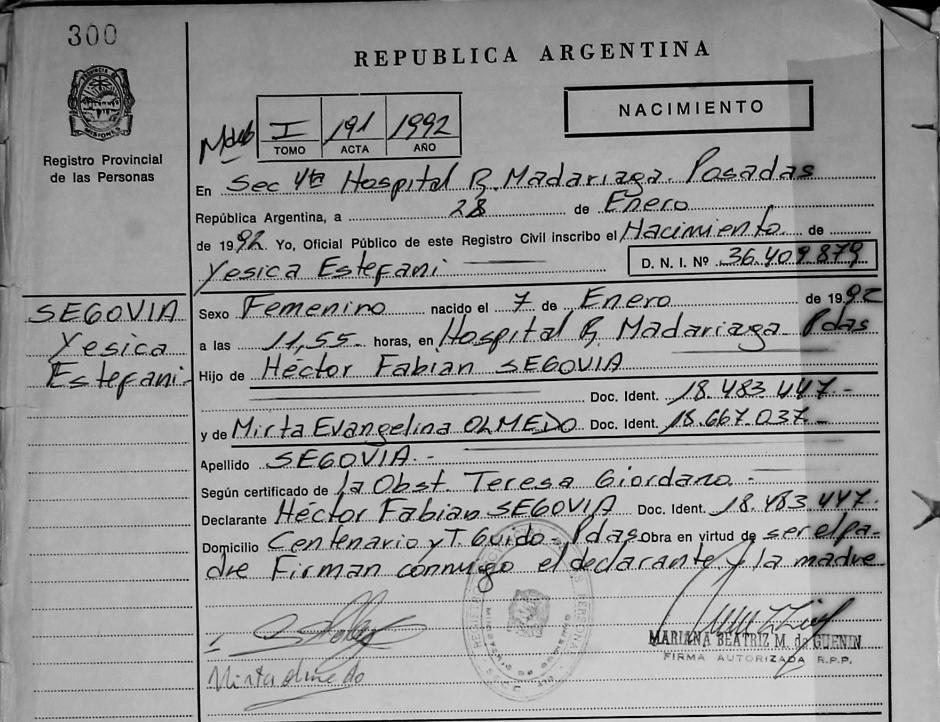 300
REPUBLICA ARGENTINA
MISIONES
Registro Provincial
de las Personas
NACIMIENTO
I 191 1992
TOMO ACTA AÑO
En Sec 4ta Hospital R. Madariaga. Posadas
República Argentina, a 28 de Enero
de 1992 Yo, Oficial Público de este Registro Civil inscribo el Nacimiento de
Yesica Estefani D. N. I. Nº 36.409.879
SEGOVIA
Yesica
Estefani-
Sexo Femenino nacido el 7 de Enero de 1992
a las 11,55 horas, en Hospital R. Madariaga Pdas
Hijo de Héctor Fabian SEGOVIA
Doc. Ident. 18.483.447-
y de Mirta Evangelina OLMEDO Doc. Ident. 18.667.037-
Apellido SEGOVIA.-
Según certificado de la Obst. Teresa Giordano-
Declarante Héctor Fabian SEGOVIA Doc. Ident. 18.483.447.
Domicilio Centenario y T. Guido- Pdas Obra en virtud de ser el pa-
dre Firman conmigo el declarante y la madre
Mirta olmedo
MARIANA BEATRIZ M. de GUENIN
FIRMA AUTORIZADA R.P.P.